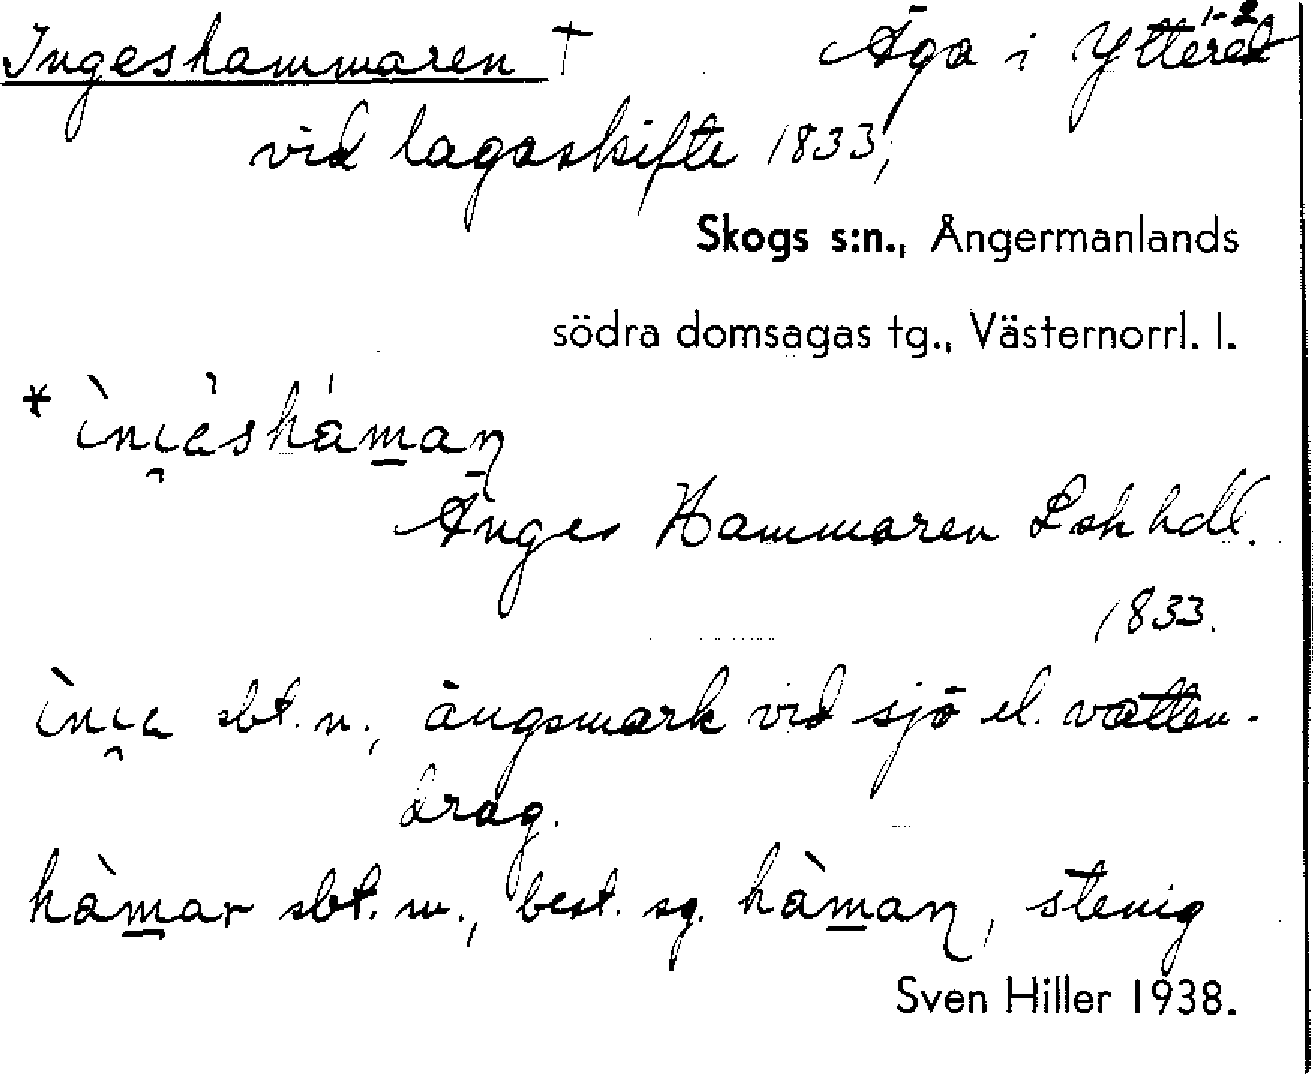 Ingeshammaren † Äga i Ytterål 1-2
vid lagaskifte 1833,
Skogs s:n., Ångermanlands
södra domsagas tg., Västernorrl. l.
Änges Hammaren Lsk hdl.
1833.
sbt. n., ängsmark vid sjö el. vatten-
drag.
hàmar sbt. m., best. sg. hàmaɳ, stenig
Sven Hiller 1938.